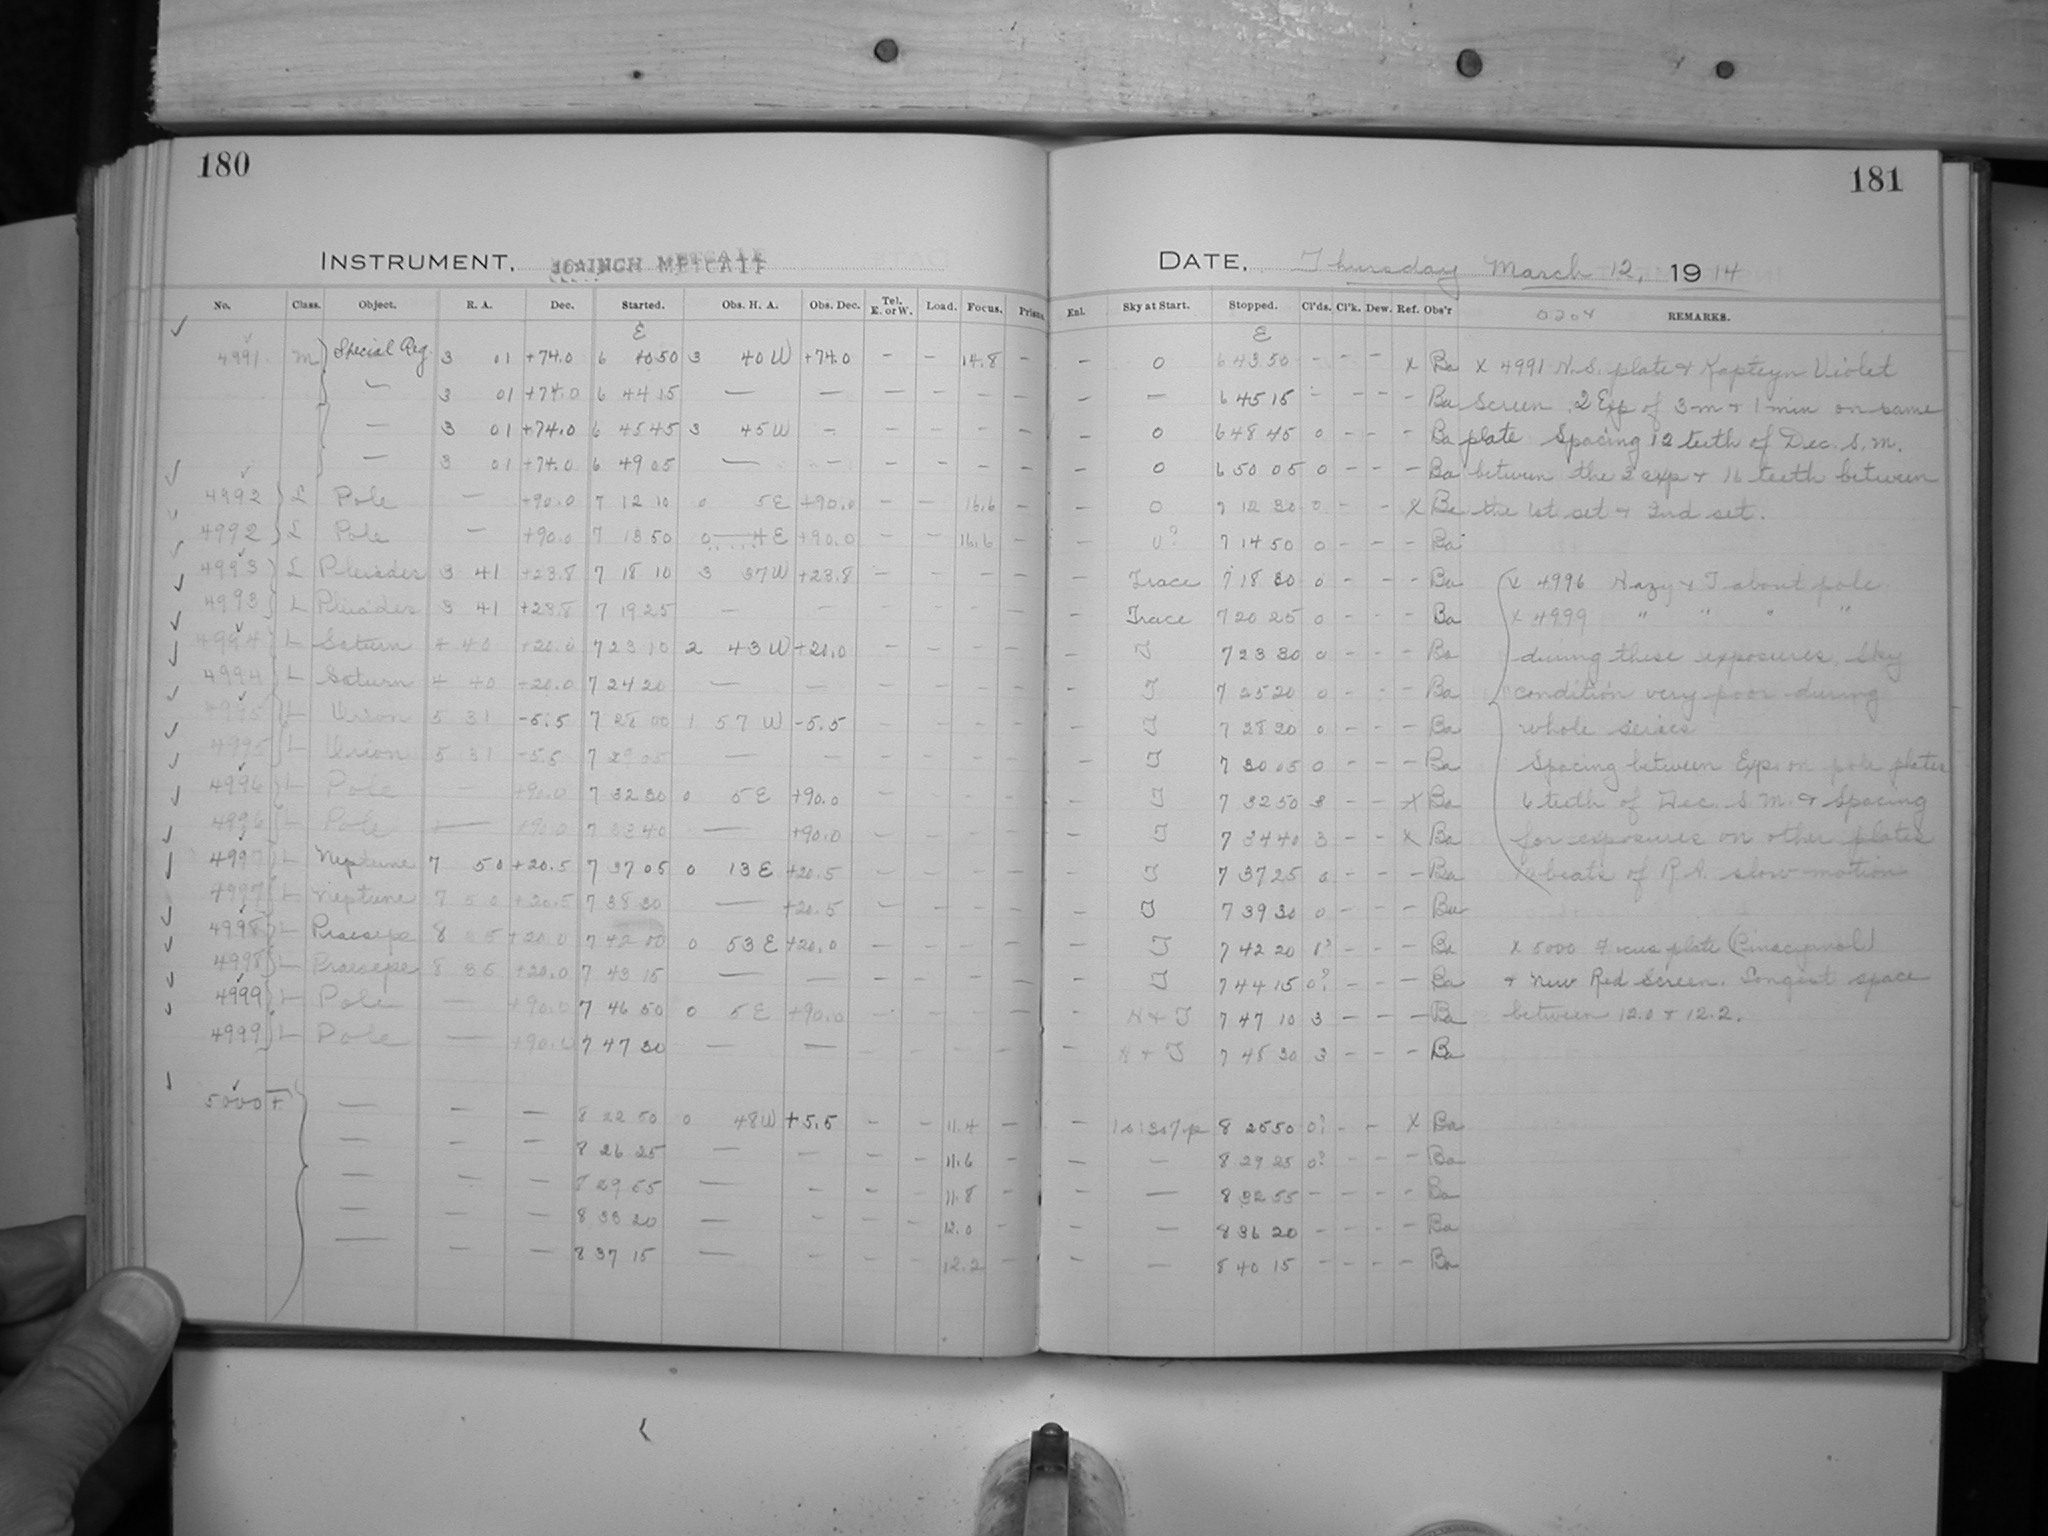 180
INSTRUMENT, 16 INCH METCALF
No. Class. Object. R. A. Dec. Started. Obs. H. A. Obs. Dec. Tel. E. or W. Load. Focus. Prisms.
E
4991 M Special Reg. 3 01 +74.0 6 40 50 3 40 W +74.0 — — 14.8 —
— 3 01 +74.0 6 44 15 — — — — — —
— 3 01 +74.0 6 45 45 3 45 W — — — — —
— 3 01 +74.0 6 49 05 — — — — — —
4992 L Pole — +90.0 7 12 10 0 5 E +90.0 — — 16.6 —
4992 L Pole — +90.0 7 13 50 0 4 E +90.0 — — 16.6 —
4993 L Pleiades 3 41 +23.8 7 18 10 3 37 W +23.8 — — — —
4993 L Pleiades 3 41 +23.8 7 19 25 — — — — — —
4994 L Saturn 4 40 +20.0 7 23 10 2 43 W +20.0 — — — —
4994 L Saturn 4 40 +20.0 7 24 20 — — — — — —
4995 L Orion 5 31 -5.5 7 28 00 1 57 W -5.5 — — — —
4995 L Orion 5 31 -5.5 7 29 05 — — — — — —
4996 L Pole — +90.0 7 32 30 0 5 E +90.0 — — — —
4996 L Pole — +90.0 7 33 40 — +90.0 — — — —
4997 L Neptune 7 50 +20.5 7 37 05 0 13 E +20.5 — — — —
4997 L Neptune 7 50 +20.5 7 38 30 — +20.5 — — — —
4998 L Praesepe 8 35 +20.0 7 42 00 0 53 E +20.0 — — — —
4998 L Praesepe 8 35 +20.0 7 43 15 — — — — — —
4999 L Pole — +90.0 7 46 50 0 5 E +90.0 — — — —
4999 L Pole — +90.0 7 47 30 — — — — — —
5000 F — — — 8 22 50 0 48 W +5.5 — — 11.4 —
— — — 8 26 25 — — — — 11.6 —
— — — 8 29 55 — — — — 11.8 —
— — — 8 33 20 — — — — 12.0 —
— — — 8 37 15 — — — — 12.2 —
181
DATE, Thursday March 12, 1914
Enl. Sky at Start. Stopped. Cl'ds. Cl'k. Dew. Ref. Obs'r 0204 REMARKS.
E
— 0 6 43 50 — — — x Ba x 4991 N.S. plate & Kapteyn Violet
— — 6 45 15 — — — — Ba Screen. 2 Exp of 3 m & 1 min on same
— 0 6 48 45 0 — — — Ba plate Spacing 12 teeth of Dec. S. M.
— 0 6 50 05 0 — — — Ba between the 2 exp & 16 teeth between
— 0 7 12 30 0 — — x Ba the 1st set & 2nd set.
— 0? 7 14 50 0 — — — Ba
— Trace 7 18 30 0 — — — Ba x 4996 Hazy & T about pole
— Trace 7 20 25 0 — — — Ba x 4999 " " " "
— T 7 23 30 0 — — — Ba during these exposures. Sky
— T 7 25 20 0 — — — Ba condition very poor during
— T 7 28 20 0 — — — Ba whole series
— T 7 30 05 0 — — — Ba Spacing between Exp. on pole plates
— T 7 32 50 3 — — x Ba 6 teeth of Dec. S. M. & Spacing
— T 7 34 40 3 — — x Ba for exposures on other plates
— T 7 37 25 0 — — — Ba beats of R.A. slow motion
— T 7 39 30 0 — — — Ba
— T 7 42 20 0? — — — Ba x 5000 Focus plate (Pinacyanol)
— T 7 44 15 0? — — — Ba & New Red Screen. Longest space
— H & T 7 47 10 3 — — — Ba between 12.0 & 12.2.
— H & T 7 48 30 3 — — — Ba
— 8 25 50 0? — — x Ba
— — 8 29 25 0? — — — Ba
— — 8 32 55 — — — — Ba
— — 8 36 20 — — — — Ba
— — 8 40 15 — — — — Ba